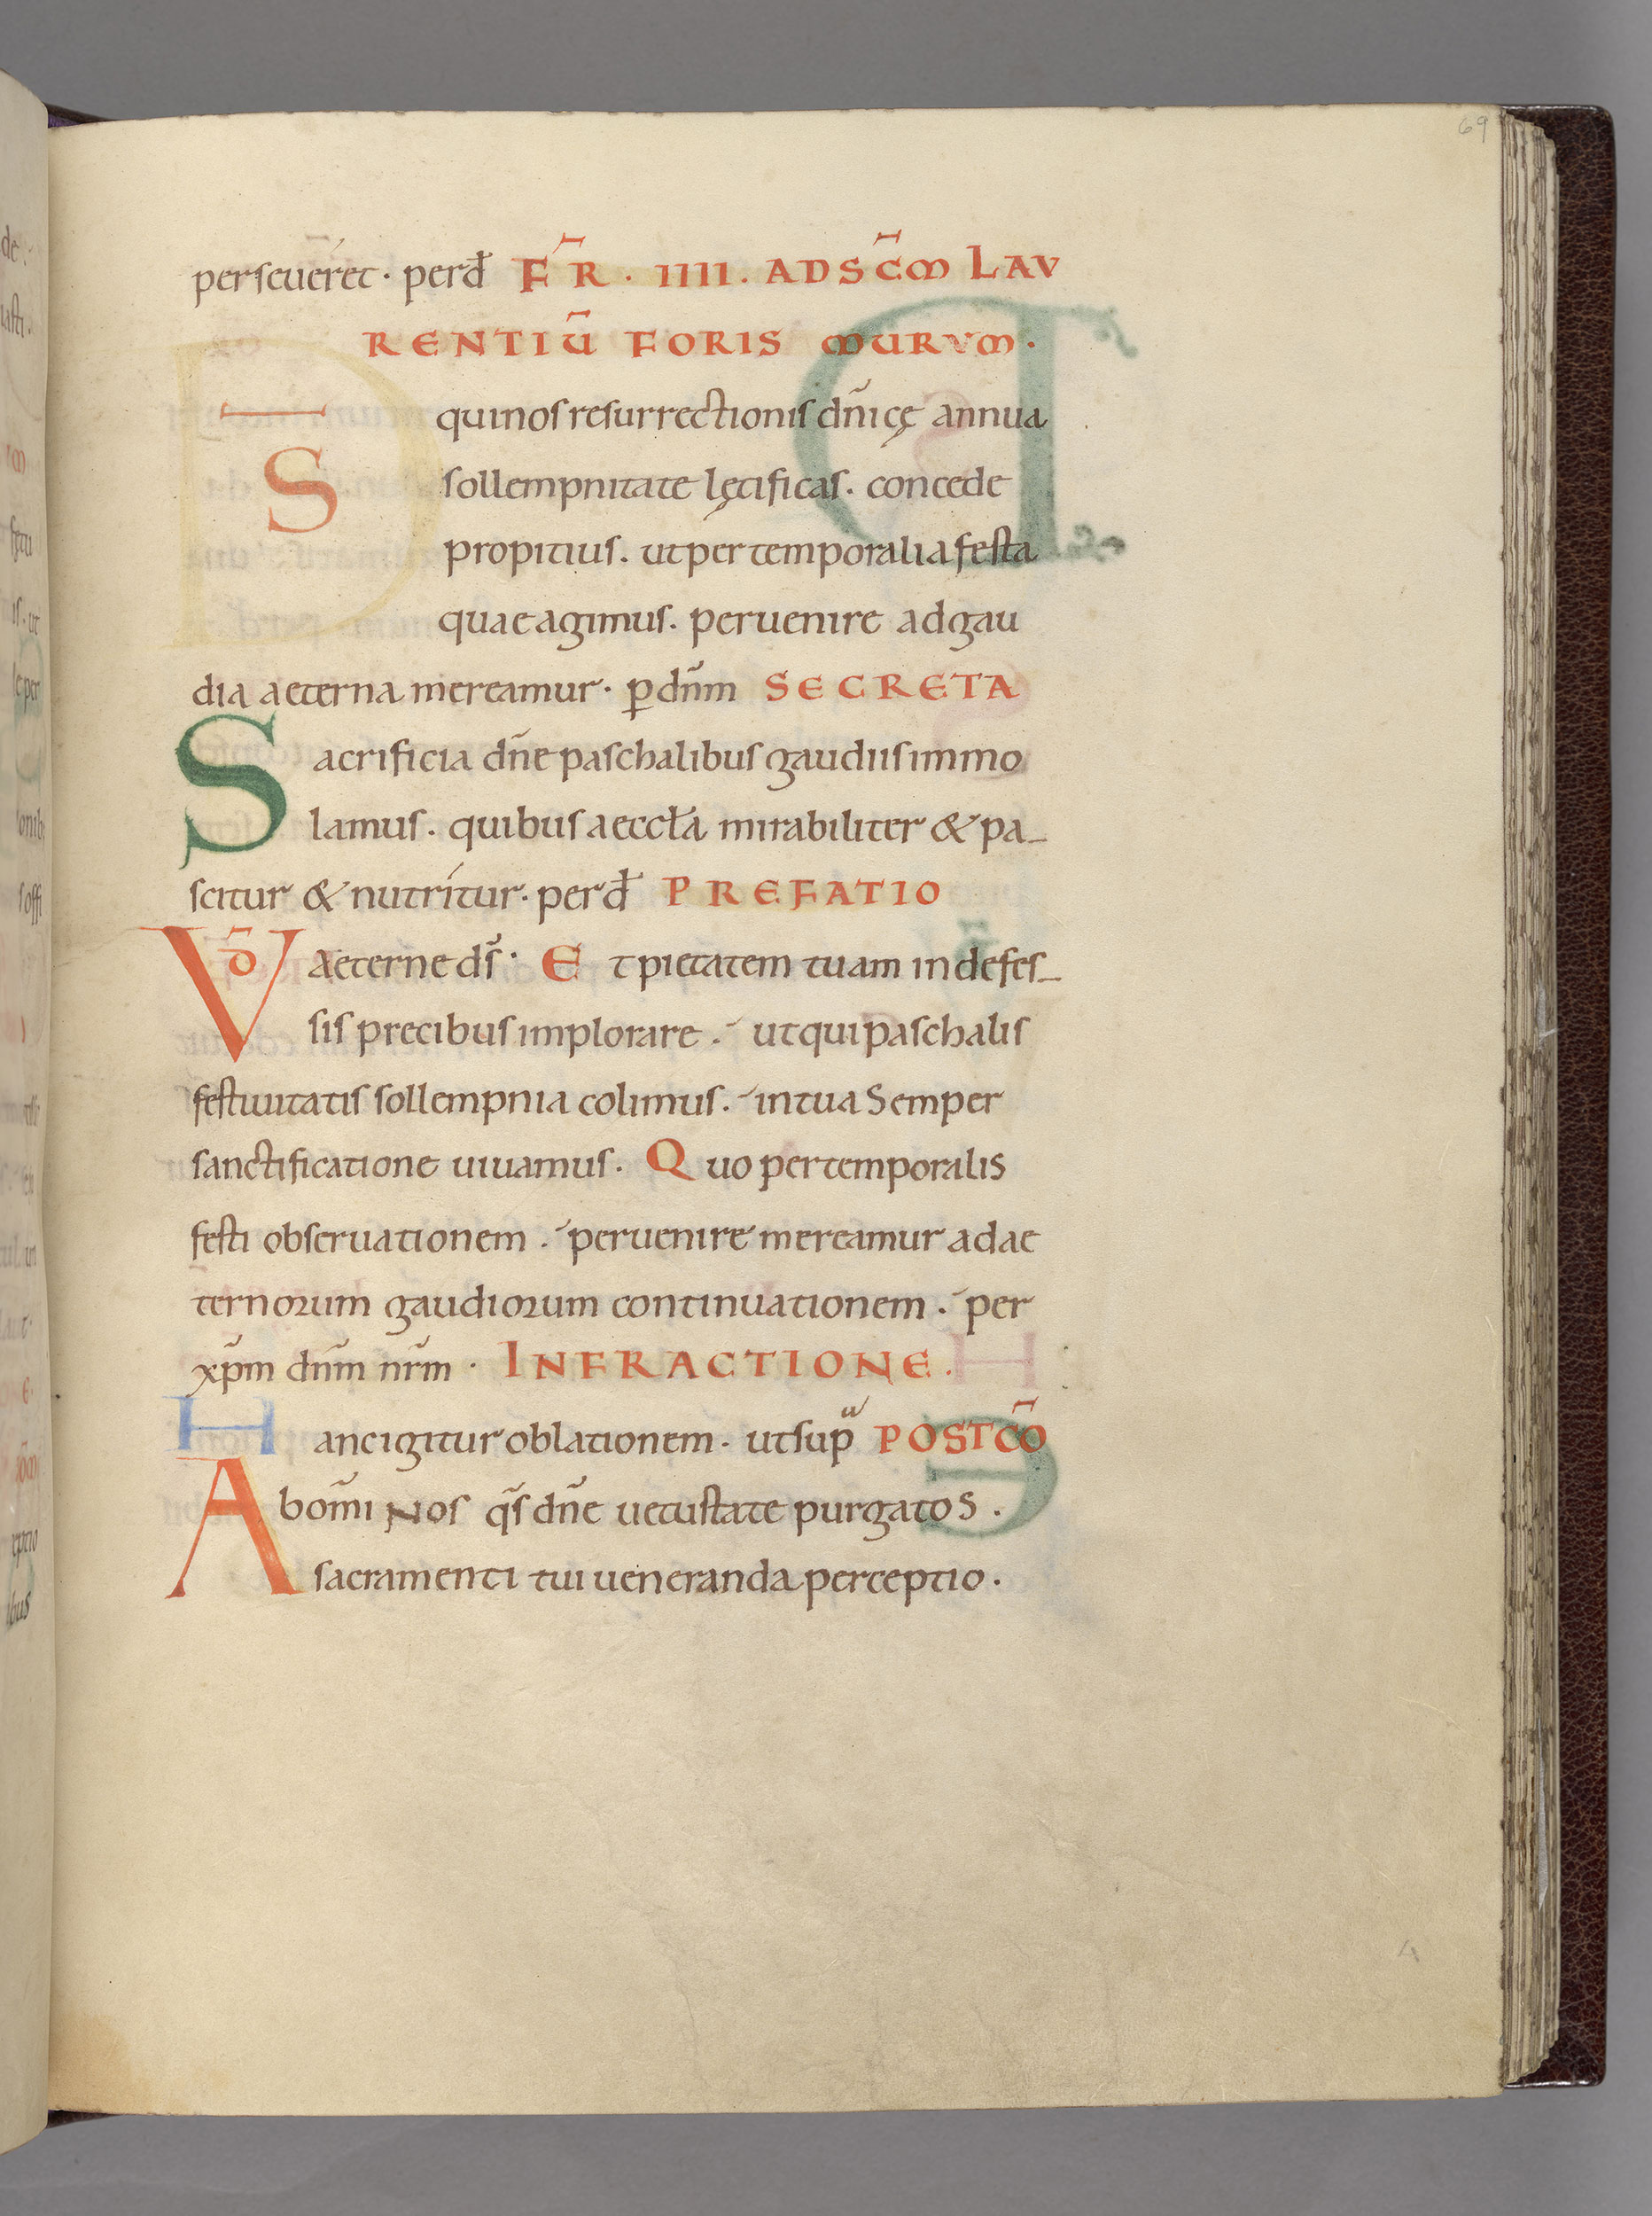 69
perseuéret · perd̄ F̄R̄ · IIII · AD SC̄M LAV
RENTIŪ FORIS MURVM ·
D̄S qui nos resurrectionis dn̄icę annua
sollempnitate lętificas · concede
propitius . ut per temporalia festa
quae agimus . peruenire ad gau
dia aeterna mereamur · ꝑ dn̄m SECRETA
Sacrificia dn̄e paschalibus gaudiis immo
lamus . quibus aeccl̄a mirabiliter & pa-
scitur & nutrítur · perd̄ PREFATIO
VD̄ aeterne ds̄ · Et pietatem tuam indefes-
sis precibus implorare . ut qui paschalis
festiuitatis sollempnia colimus . in tua Semper
sanctificatione uiuamus . Quo per temporalis
festi obseruationem . peruenire mereamur ad ae
ternorum gaudiorum continuationem . per
xp̄m dn̄m nr̄m · IN FRACTIONE .
Hanc igitur oblationem . ut sup̄ POST CŌ
Ab om̄i Nos qs̄ dn̄e uetustate purgatos .
sacramenti tui ueneranda perceptio .